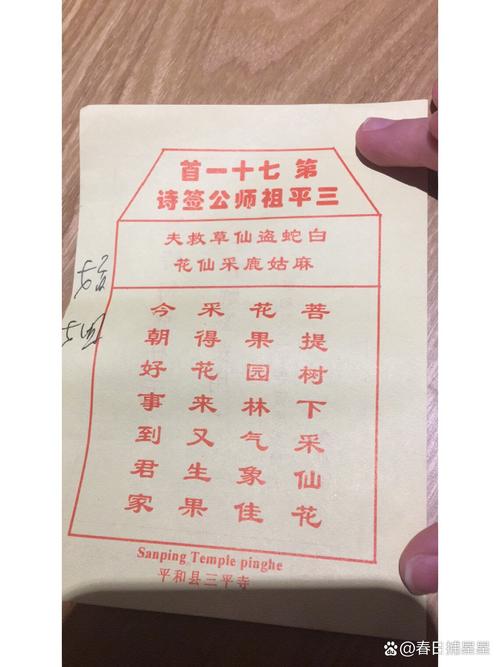 第七十一首
三平祖师公签诗
白蛇盗仙草救夫
麻姑鹿采仙花
菩提树下采仙花
花果园林气象佳
采得花来又生果
今朝好事到君家
Sanping Temple pinghe
平和县三平寺
春日捕星星